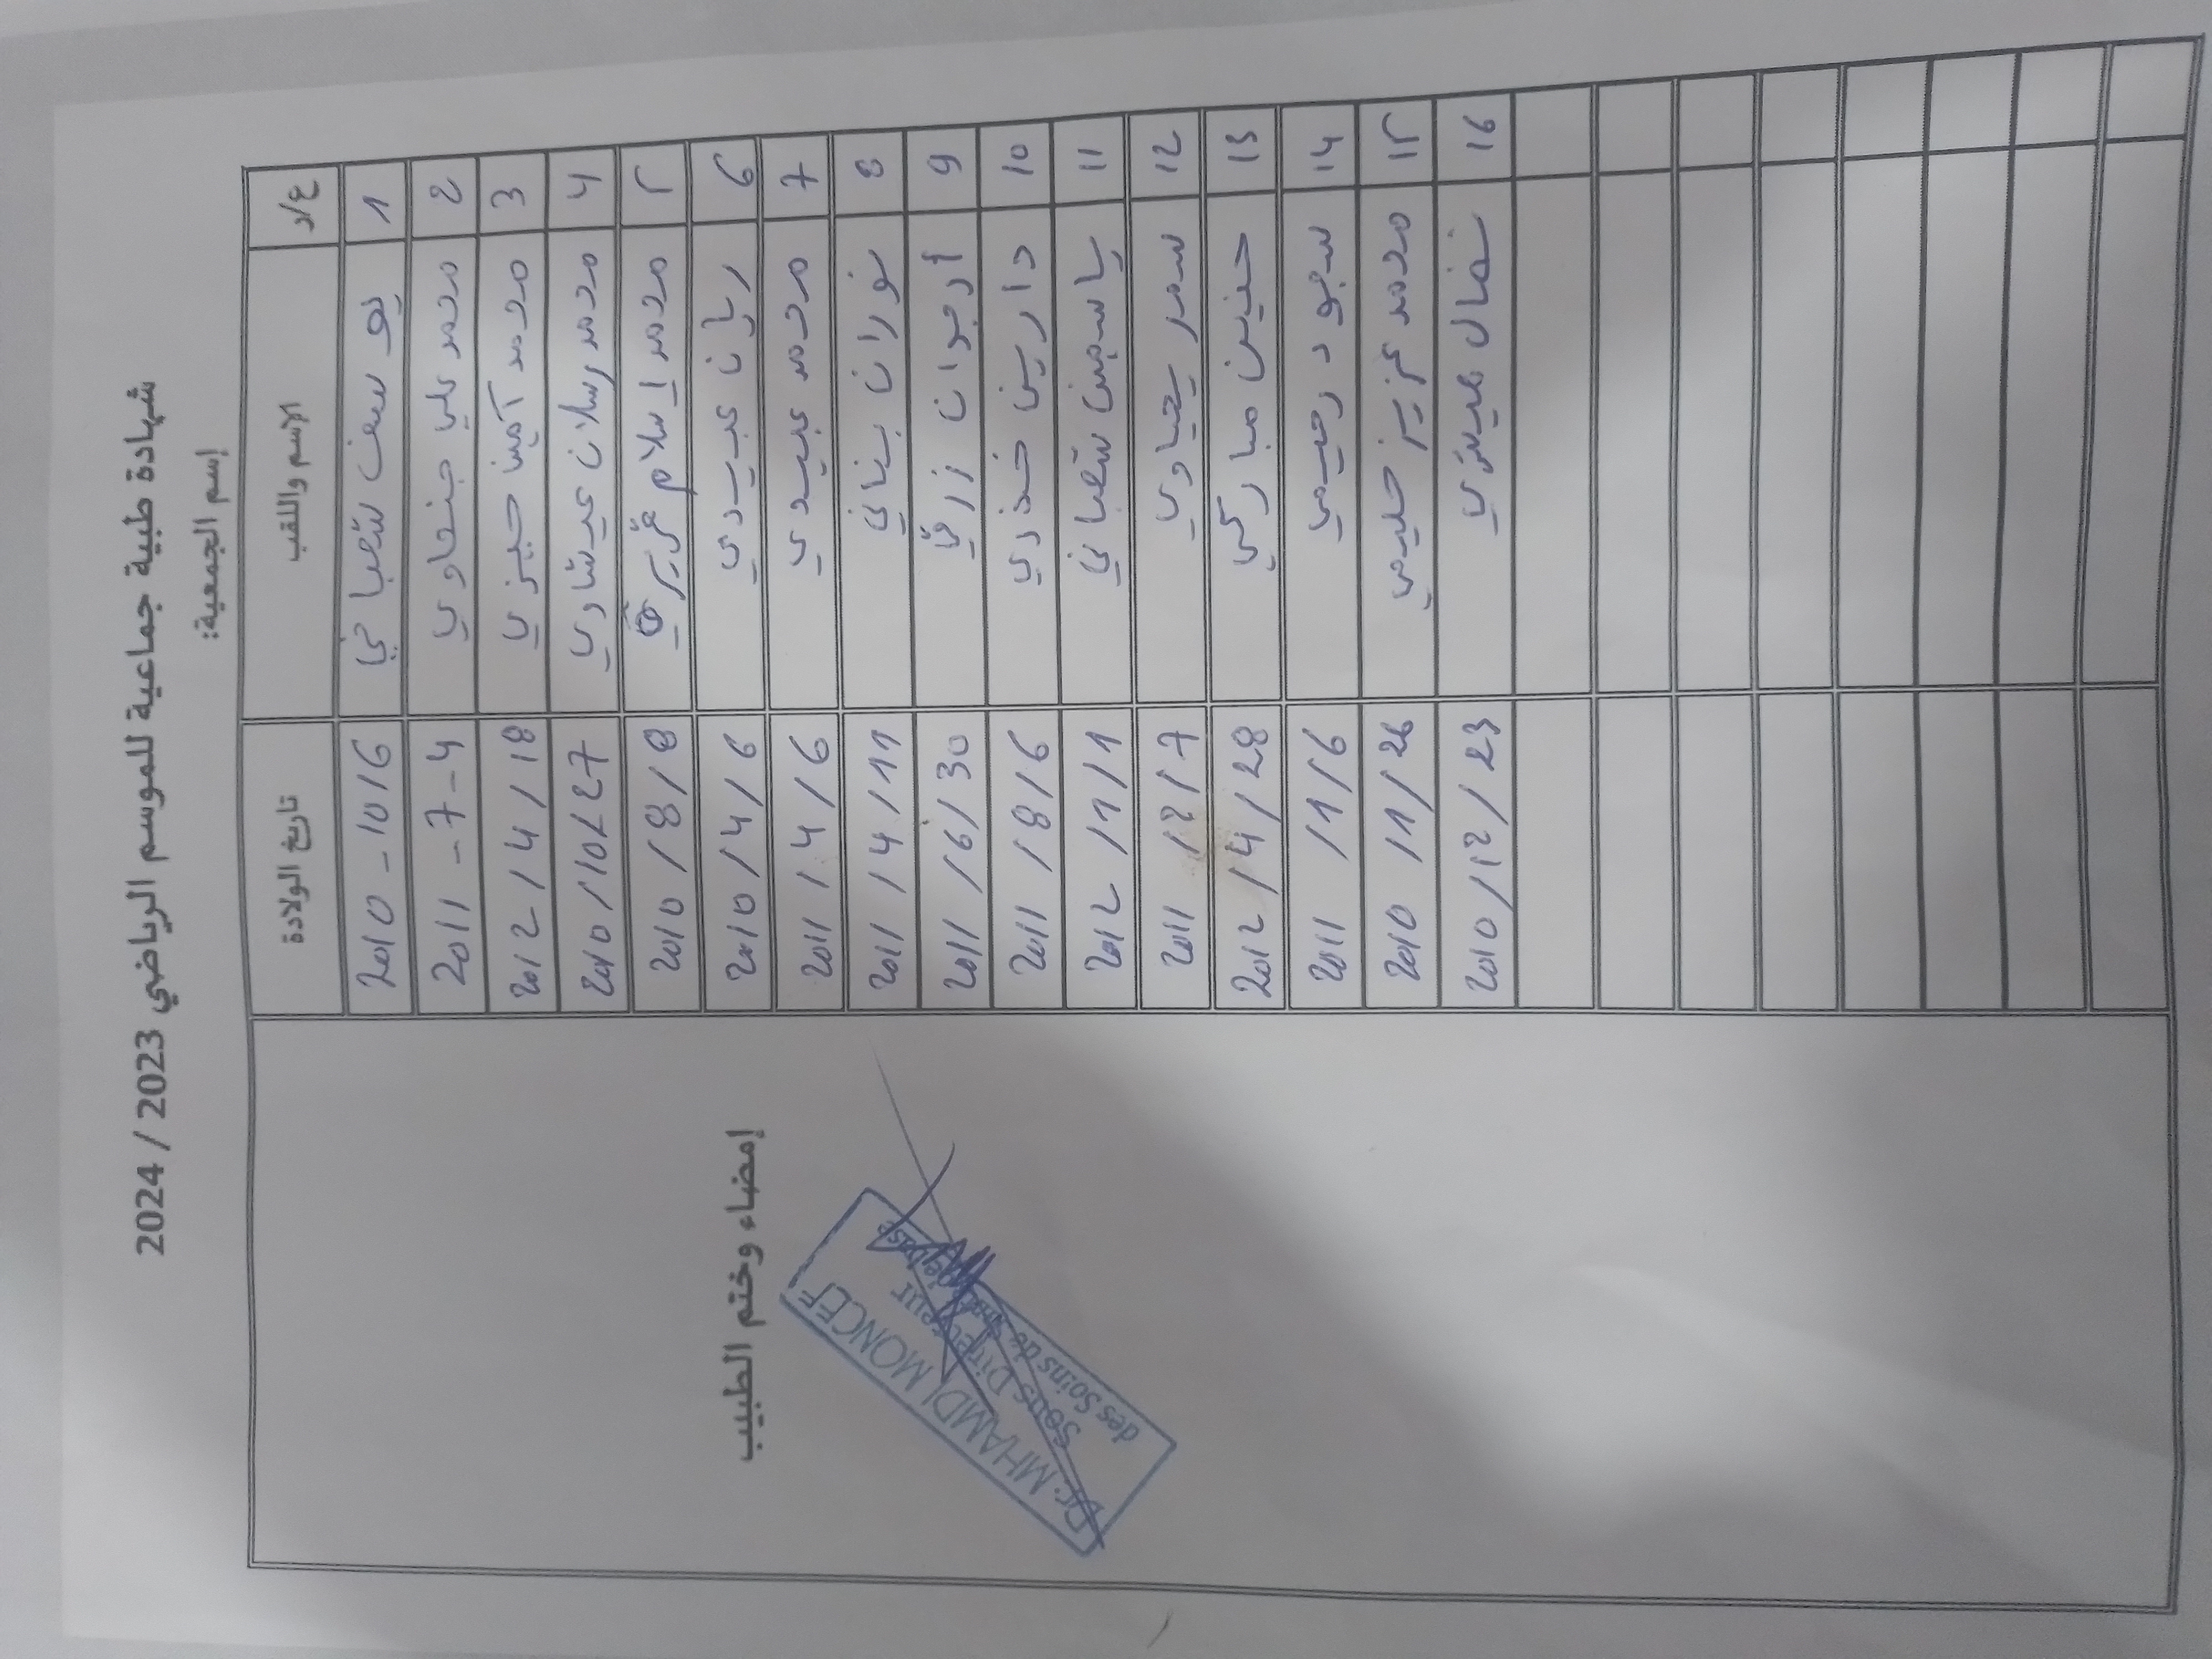 شهادة طبية جماعية للموسم الرياضي 2023 / 2024
إسم الجمعية:
ع/د الاسم واللقب تاريخ الولادة
1 يوسف شعباني 2010 - 10/6
2 محمد علي جنحاوي 2011 - 7 - 4
3 محمد آمين 2012 / 4 / 18
4 محمد رسلان عيشاوي 2010 / 10 / 27
5 محمد إسلام 2010 / 8 / 8
6 ريان عبيدي 2010 / 4 / 6
7 محمد عبيدي 2011 / 4 / 6
8 نوران بناني 2011 / 4 / 11
9 أرجوان زرقي 2011 / 6 / 30
10 دارين خذري 2011 / 8 / 6
11 ياسمين شعباني 2012 / 1 / 1
12 سمر يحياوي 2011 / 2 / 7
13 حنين مباركي 2012 / 4 / 28
14 سجود رحيمي 2011 / 1 / 6
15 محمد عزيز حليمي 2010 / 1 / 26
16 نضال عيشي 2010 / 12 / 23
إمضاء وختم الطبيب
Dr. MHAMDI MONCEF
Sous Directeur
des Soins de santé de base